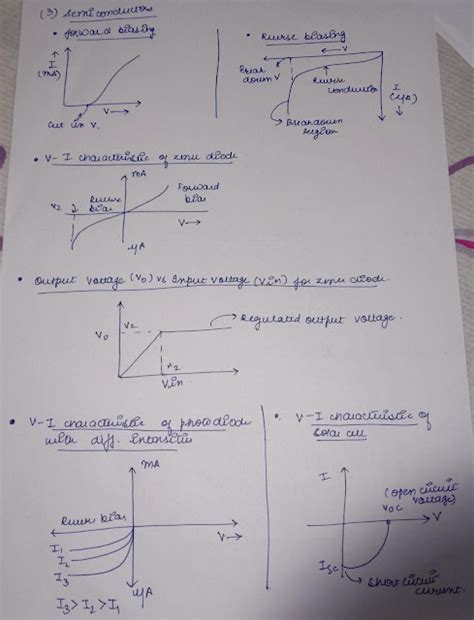 (3) Semiconductors
• forward biasing
I
(mA)
V→
Cut in V.
• Reverse biasing
←V
Break
down V
Reverse
conductor
I
(μA)
↓
Breakdown
region
• V-I characteristic of zener diode
mA
Reverse
bias
Forward
bias
Vz
V→
μA
• Output voltage (Vo) vs Input voltage (Vin) for zener diode.
Vo
Vz
Regulated output voltage.
Vz
Vin
• V-I characteristic of photodiode
with diff. intensities
mA
Reverse bias
V→
I1
I2
I3
μA
I3 > I2 > I1
• V-I characteristic of
solar cell
I
(open circuit
voltage)
Voc
V
Isc
Short circuit
current.